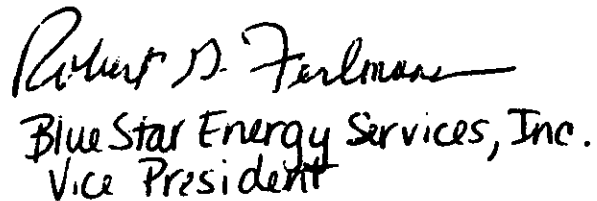 Robert D. Ferlmann
BlueStar Energy Services, Inc.
Vice President